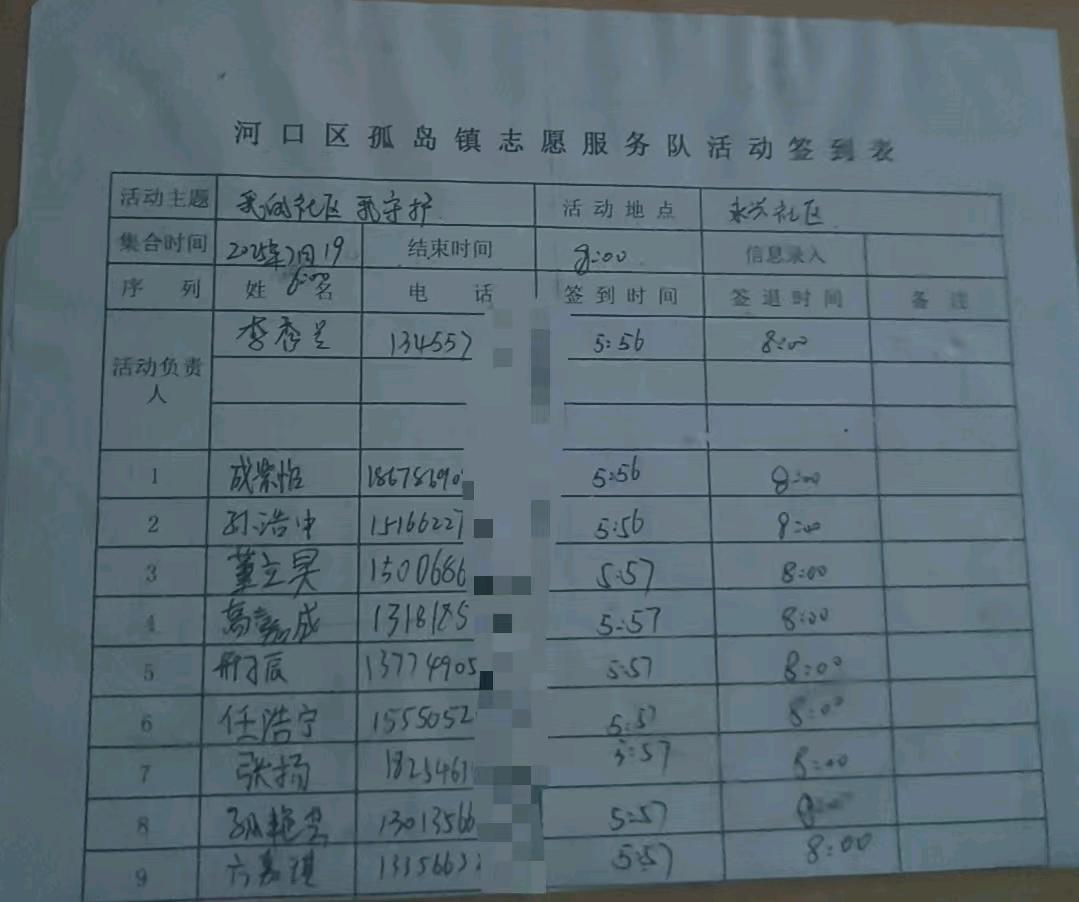 河口区孤岛镇志愿服务队活动签到表
活动主题 我的社区 我守护 活动地点 永兴社区
集合时间 2025年7月19 6:00 结束时间 8:00 信息录入
序列 姓名 电话 签到时间 签退时间 备注
活动负责人 李秀兰 134557 5:56 8:00
1 成紫怡 18678690 5:56 8:00
2 孙浩中 15166227 5:56 8:00
3 董立昊 1500686 5:57 8:00
4 高嘉成 1318185 5:57 8:00
5 邢子辰 13774905 5:57 8:00
6 任浩宁 1555052 5:57 8:00
7 张扬 1825461 5:57 8:00
8 孙艳 13013566 5:57 8:00
9 嘉琪 1335663 5:57 8:00